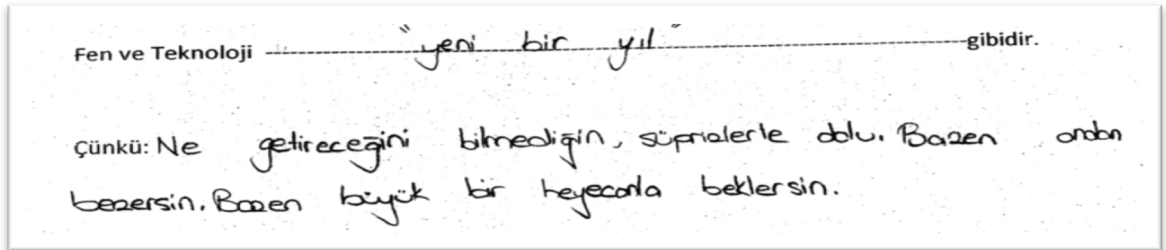 Fen ve Teknoloji "yeni bir yıl" gibidir.
Çünkü: Ne getireceğini bilmediğin, süprizlerle dolu. Bazen ondan
bezersin. Bazen büyük bir heyecanla beklersin.